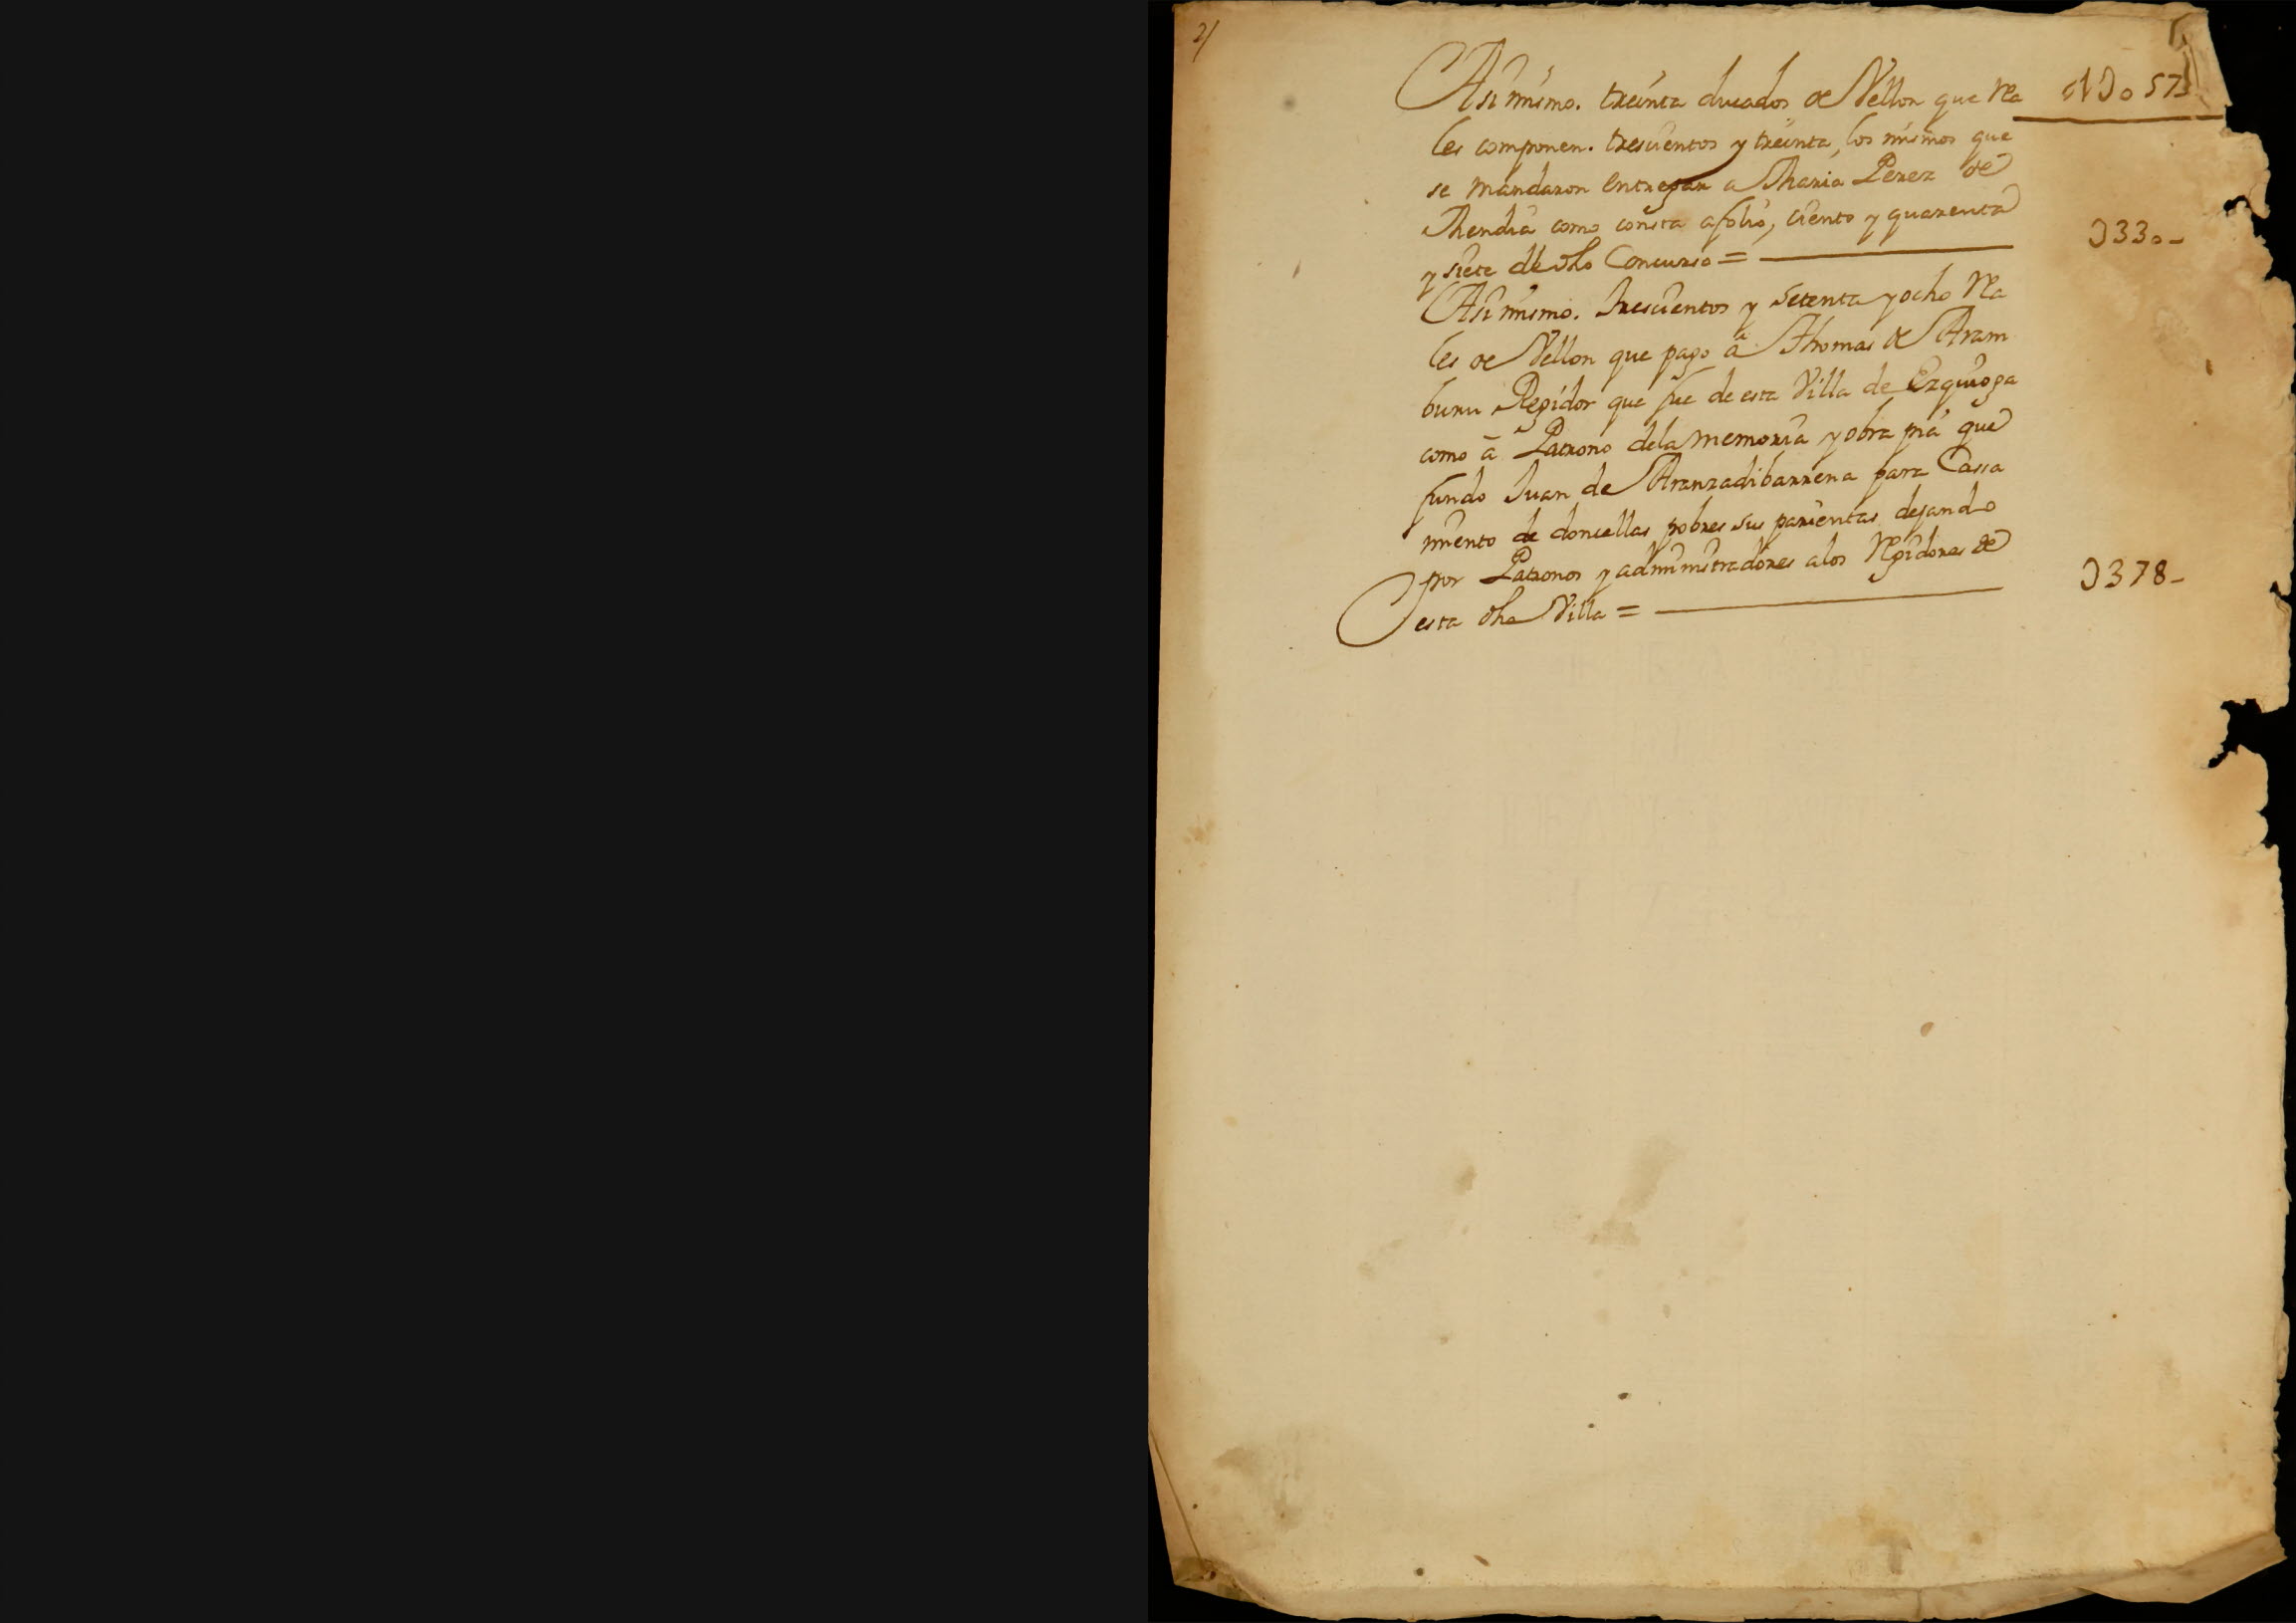 2/
Asi mismo. treinta ducados de Vellon que Rea
les componen. trescientos y treinta, los mismos que
se mandaron entregar a Maria Perez de
Mendia como consta a folio, ciento y quarenta
y siete de dho Concurso = 0330-
Asi mismo. trescientos y setenta y ocho Rea
les de Vellon que pago â Thomas de Aram
buru Regidor que fue de esta Villa de Ezquioga
como â Patrono dela memoria y obra pia que
fundo Juan de Aranzadibarrena para Cassa
miento de doncellas pobres sus parientas dejando
por Patronos y administradores a los Regidores de
esta dha Villa = 0378-